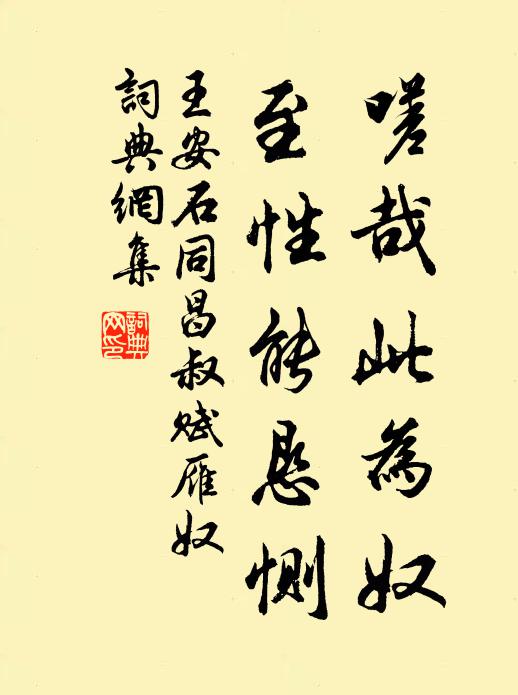 嗟哉此為奴
至性能恳惻
王安石同昌叔賦雁奴
詞典網集
詞典网印